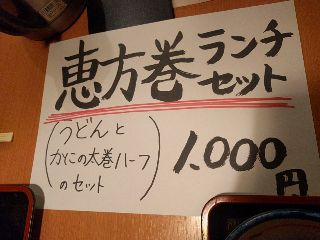 恵方巻ランチ
セット
(うどんと
かにの太巻ハーフ
のセット)
1.000円